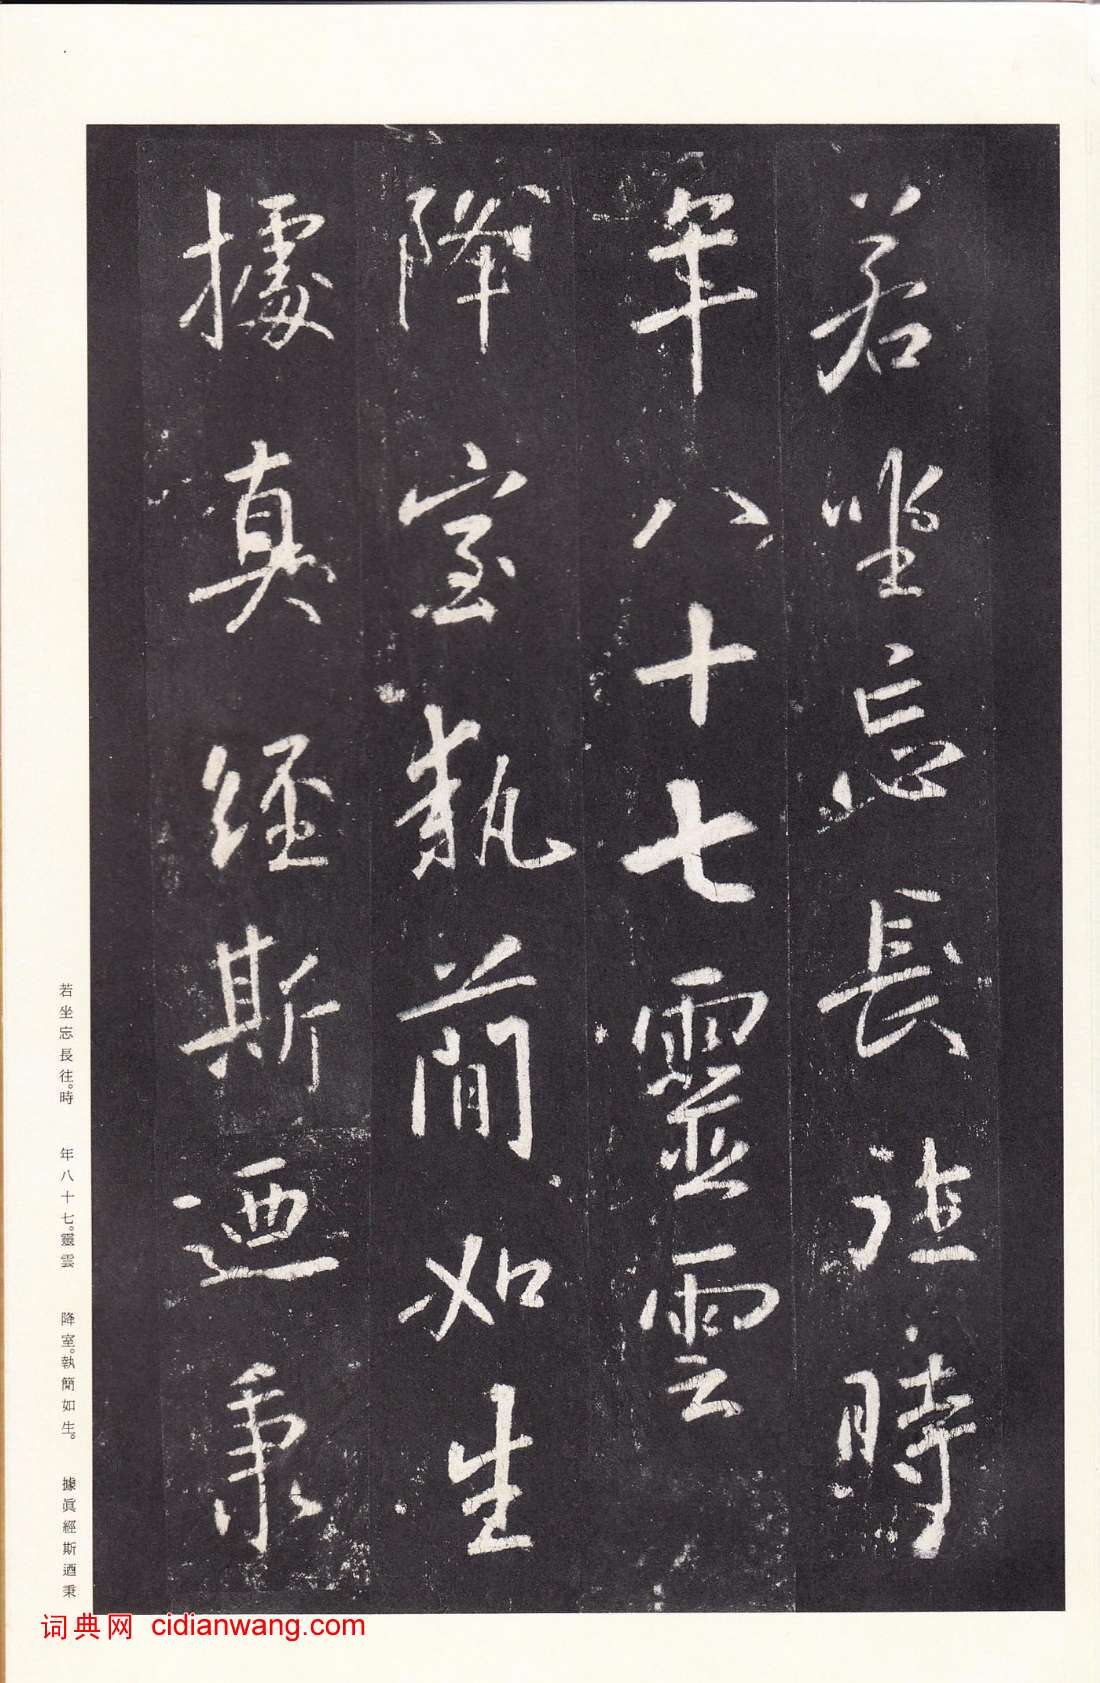 若坐忘長往時
年八十七靈雲
降室執簡如生
據真經斯迺秉
若坐忘長往。時 年八十七。靈雲 降室。執簡如生。 據眞經斯迺秉
词典网 cidianwang.com